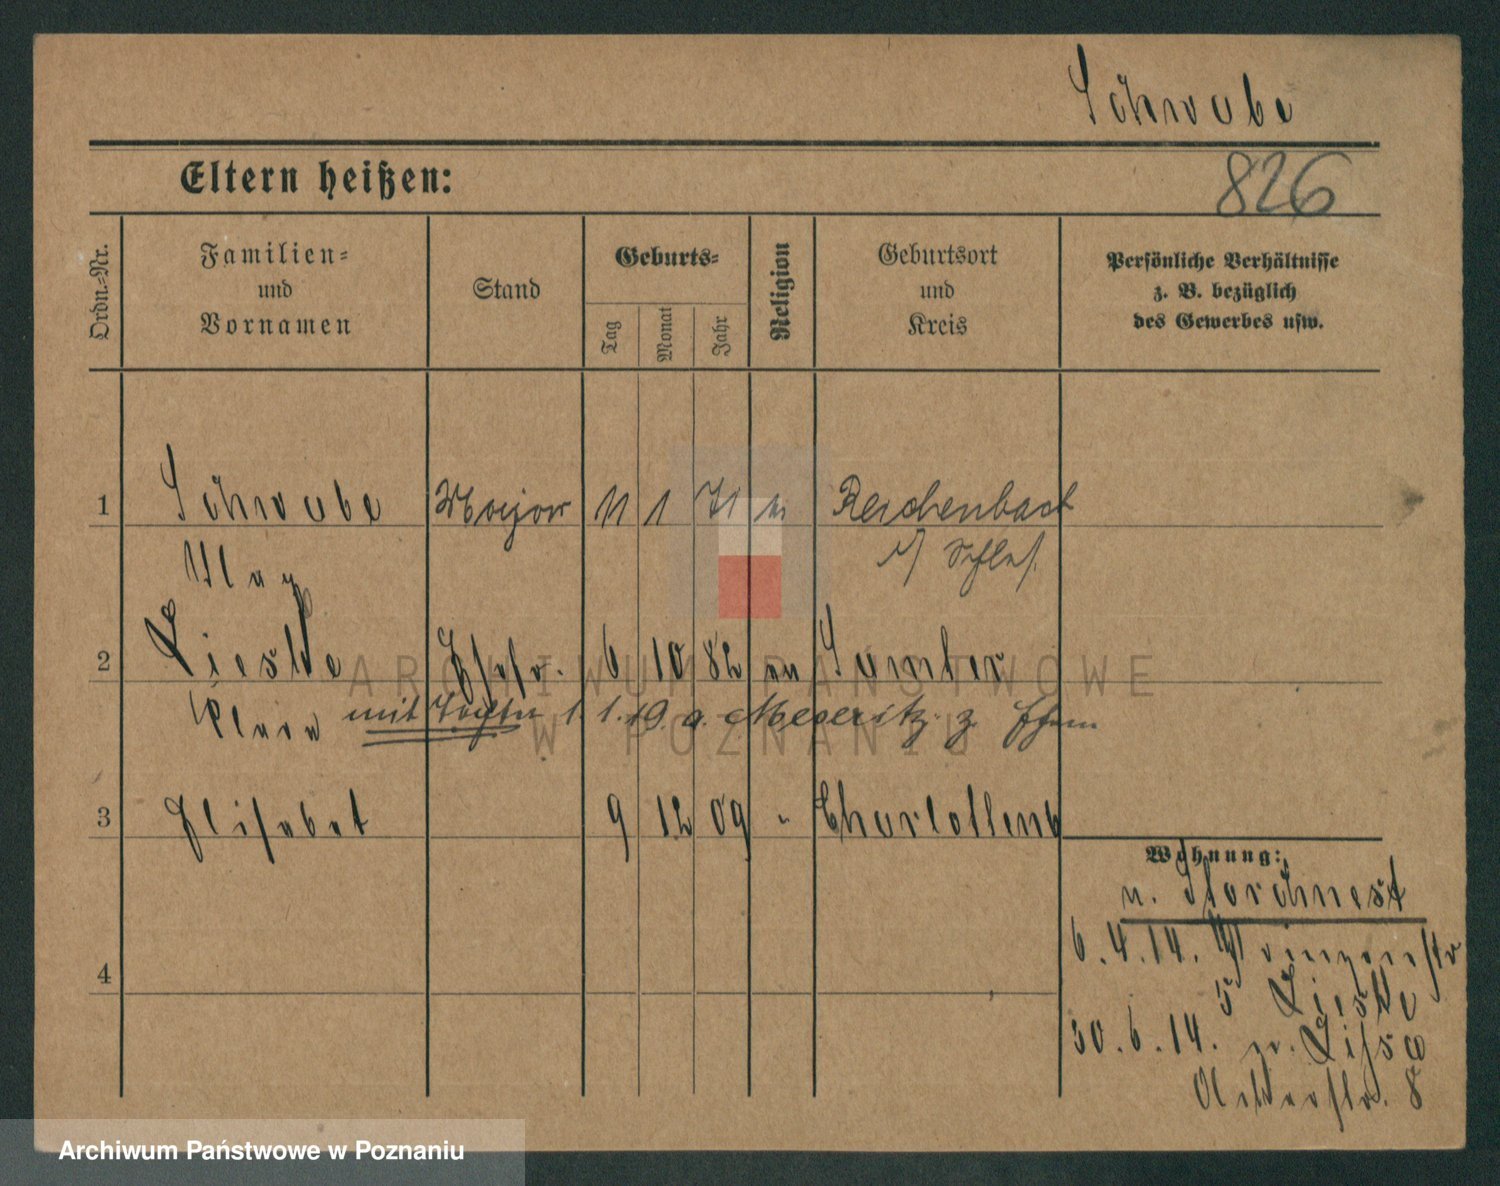 Schwabe
Eltern heißen:
826
Ordn.-Nr.
Familien-
und
Vornamen
Stand
Geburts-
Tag
Monat
Jahr
Religion
Geburtsort
und
Kreis
Persönliche Verhältnisse
z. B. bezüglich
des Gewerbes usw.
1 Schwabe Major 11 1 71 Reichenbach
i/ Schles.
Max
2 Lieske Ehefr. 6 10 82 ev
Klara mit Tochter 1.1.19. a. Meseritz z. Ehem
3 Elisabet 9 12 09 " Charlottenb
Wohnung:
n. Storchnest
6.4.14. Prinzenstr
5 Lieske
30.6.14. n. Lissa
8
4
ARCHIWUM PAŃSTWOWE
W POZNANIU
Archiwum Państwowe w Poznaniu